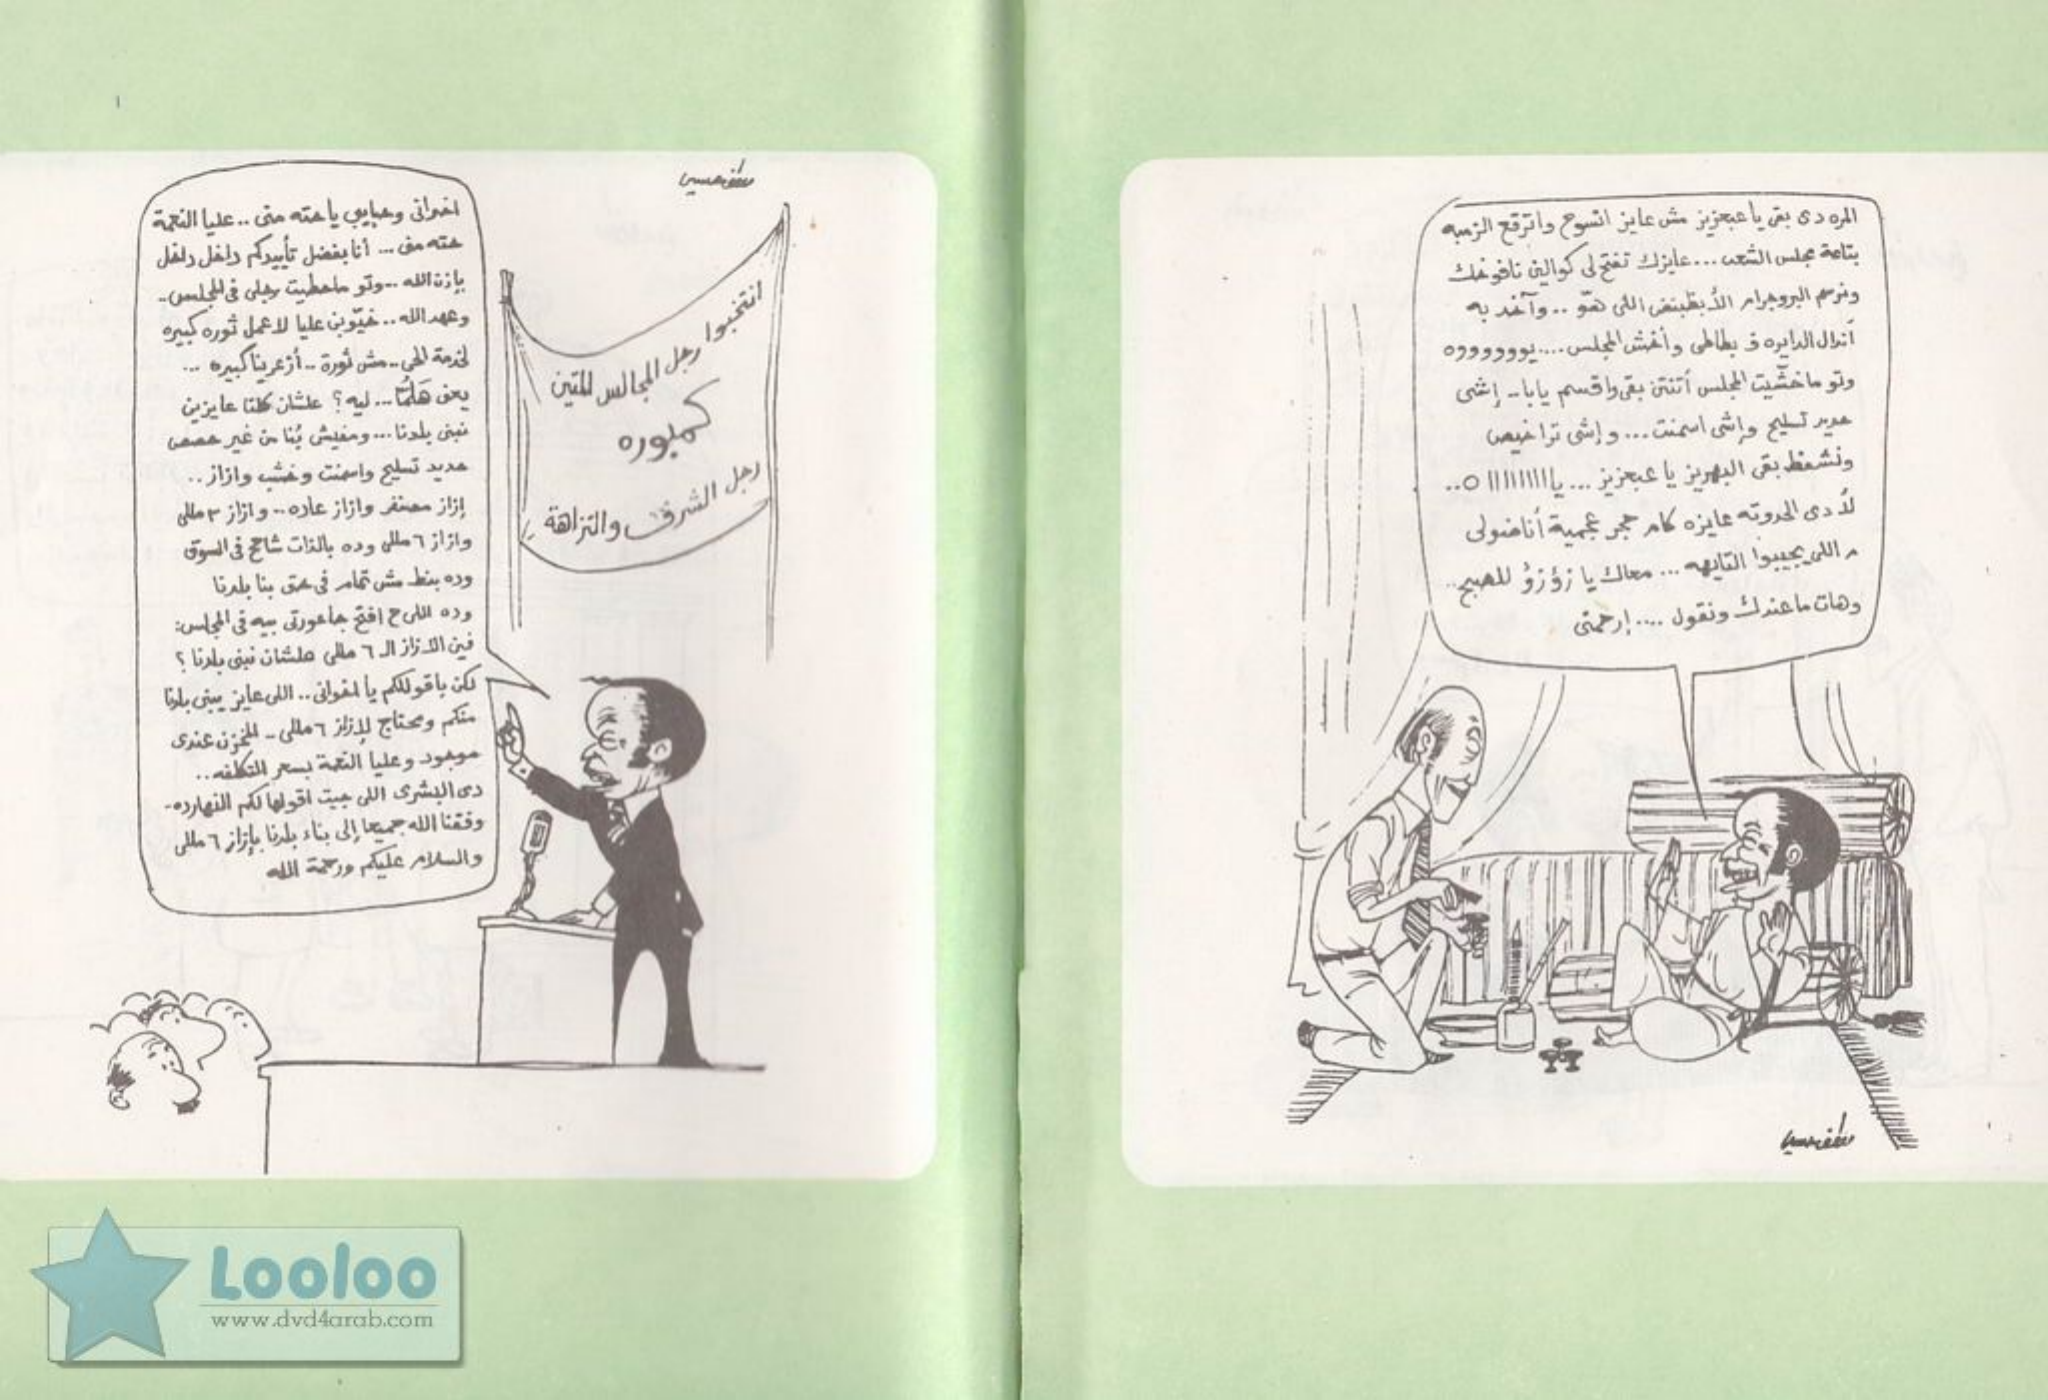 المره دى بقى يا عبعزيز مش عايز اتسوح واترقع الزمبه
بتاعة مجلس الشعب... عايزك تفتح لى كوالين نافوخك
ونرسم البروجرام الأبظبنض اللى هوّ .. وآخد به
أندال الدايره ف بطاطى وأخش المجلس....يوووووووه
وتو ما خشّيت المجلس أتنتن بقى واقسم يابا.. إشى
حديد تسليح وإشى اسمنت... وإشى تراخيص
ونشفط بقى البهريز يا عبعزيز ... يااااااااااا ه..
لأ دى الحدوته عايزه كام حجر عجمية أناضولى
م اللى يجيبوا التايهه... معاك يا زؤزؤ للصبح..
وهات ما عندك ونقول .... إرحمنى
اخوانى وحبايبى يا حته منى .. عليا النعمة
حته منى ... أنا بفضل تأييدكم داخل داخل
بإذن الله .. وتو ماحطيت رجلى فى المجلس..
وعهد الله.. خيّوبن عليا لاعمل ثوره كبيره
لخدمة الحى.. مش ثورة.. أزعرينا كبيره ...
يعنى هَلُمَّا... ليه؟ علشان كلنا عايزين
نبنى بلدنا... ومفيش بُنا من غير حصص
حديد تسليح واسمنت وخشب وازاز..
إزاز مصنفر وازاز عاده.. وازاز ٣ مللى
وازاز ٦ مللى وده بالذات شاحح فى السوق
وده بنط مش تمام فى حق بنا بلدنا
وده اللى ح افتح جاعورتى بيه فى المجلس:
فين الازاز الـ ٦ مللى علشان نبنى بلدنا ؟
لكن باقوللكم يا اخوانى.. اللى عايز يبنى بلدنا
منكم ومحتاج لإزاز ٦ مللى .. المخزن عندى
موجود وعليا النعمة بسعر التكلفه..
دى البشرى اللى جيت اقولها لكم النهارده-
وفقنا الله جميعا إلى بناء بلدنا بإزاز ٦ مللى
والسلام عليكم ورحمة الله
انتخبوا رجل المجالس المتين
كمبوره
رجل الشرف والنزاهة
Looloo
www.dvd4arab.com